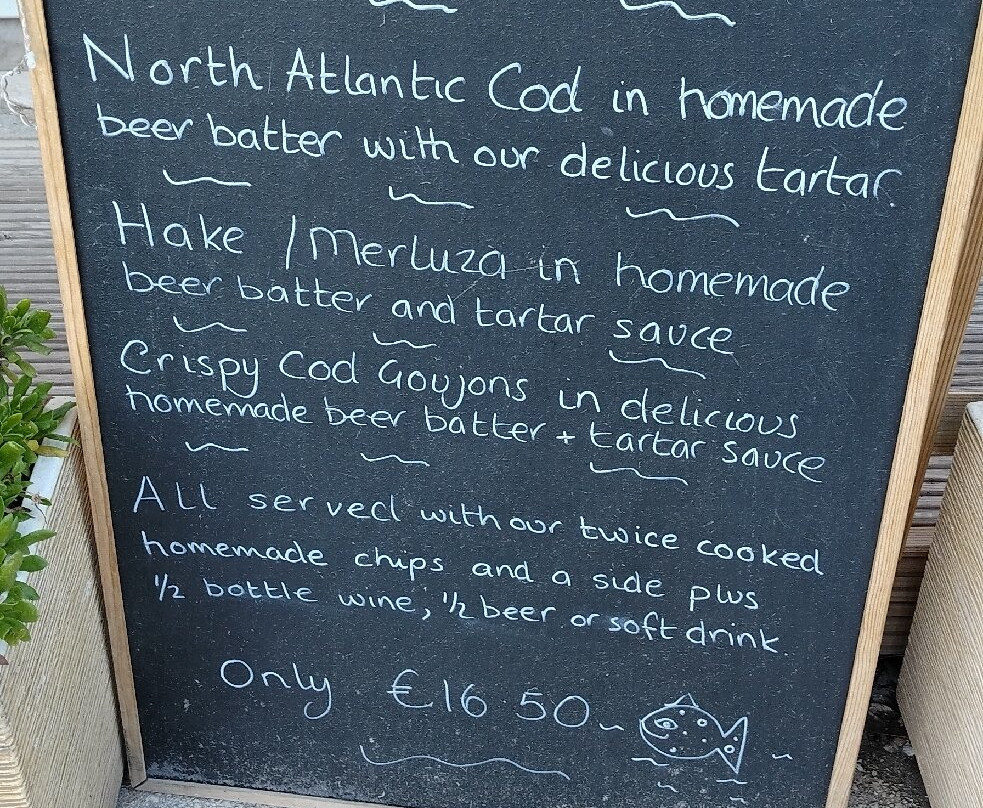 North Atlantic Cod in homemade
beer batter with our delicious tartar.
Hake / Merluza in homemade
beer batter and tartar sauce
Crispy Cod Goujons in delicious
homemade beer batter + tartar sauce
All served with our twice cooked
homemade chips and a side plus
1/2 bottle wine, 1/2 beer or soft drink.
Only €16 50